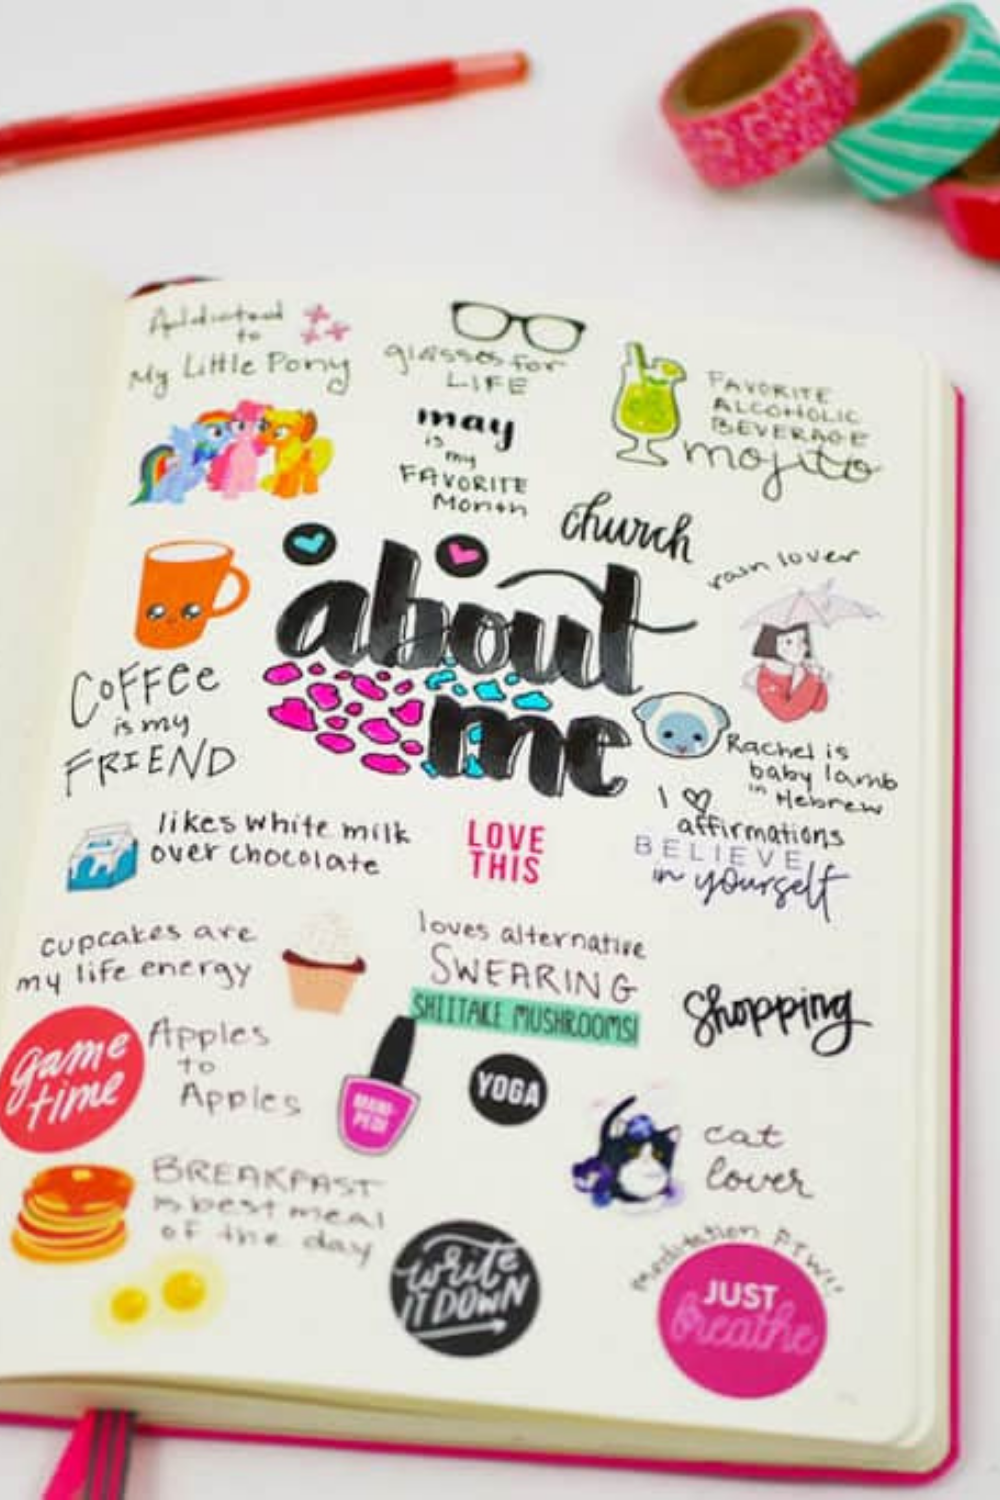 Addicted
to
My Little Pony
glasses for
LIFE
may
is
my
FAVORITE
Month
FAVORITE
ALCOHOLIC
BEVERAGE
mojito
church
rain lover
about
me
COFFee
is my
FRIEND
Rachel is
baby lamb
in Hebrew
likes white milk
over chocolate
LOVE
THIS
I ♡
affirmations
BELIEVE
in yourself
cupcakes are
my life energy
loves alternative
SWEARING
SHIITAKE MUSHROOMS!
shopping
game
time
Apples
to
Apples
MANI-
PEDI
YOGA
cat
lover
BREAKFAST
is best meal
of the day
write
IT DOWN
meditation FTW!!
JUST
breathe